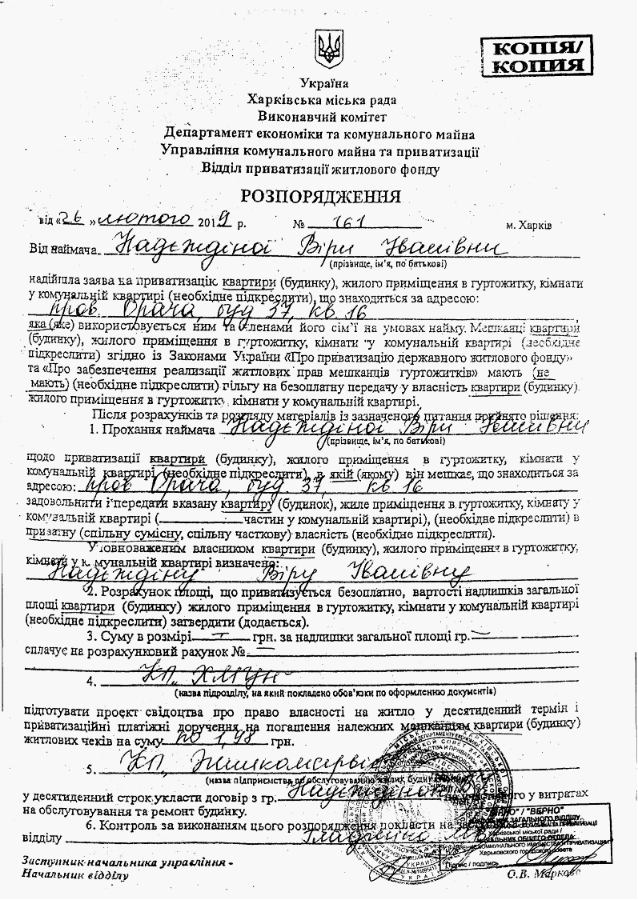 КОПІЯ/
КОПИЯ
Україна
Харківська міська рада
Виконавчий комітет
Департамент економіки та комунального майна
Управління комунального майна та приватизації
Відділ приватизації житлового фонду
РОЗПОРЯДЖЕННЯ
від «26 » лютого 2019 р. № 161 м. Харків
Від наймача Надєждіної Віри
(прізвище, ім'я, по батькові)
надійшла заява на приватизацію квартири (будинку), жилого приміщення в гуртожитку, кімнати
у комунальній квартирі (необхідне підкреслити), що знаходиться за адресою:
буд 37, кв. 16
яка (яке) використовується ним та членами його сім'ї на умовах найму. Мешканці квартири
(будинку), жилого приміщення в гуртожитку, кімнати у комунальній квартирі (необхідне
підкреслити) згідно із Законами України «Про приватизацію державного житлового фонду»
та «Про забезпечення реалізації житлових прав мешканців гуртожитків» мають (не
мають) (необхідне підкреслити) пільгу на безоплатну передачу у власність квартири (будинку)
жилого приміщення в гуртожитку, кімнати у комунальній квартирі.
Після розрахунків та розгляду матеріалів із зазначеного питання прийнято рішення:
1. Прохання наймача Надєждіної Віри
(прізвище, ім'я, по батькові)
щодо приватизації квартири (будинку), жилого приміщення в гуртожитку, кімнати у
комунальній квартирі (необхідне підкреслити), в якій (якому) він мешкає, що знаходиться за
адресою: буд. 37, кв 16
задовольнити і передати вказану квартиру (будинок), жиле приміщення в гуртожитку, кімнату у
комунальній квартирі ( частин у комунальній квартирі), (необхідне підкреслити) в
приватну (спільну сумісну, спільну часткову) власність (необхідне підкреслити).
Уповноваженим власником квартири (будинку), жилого приміщення в гуртожитку,
кімнати у комунальній квартирі визначено:
Надєждіну Віру
2. Розрахунок площі, що приватизується безоплатно, вартості надлишків загальної
площі квартири (будинку) жилого приміщення в гуртожитку, кімнати у комунальній квартирі
(необхідне підкреслити) затвердити (додається).
3. Суму в розмірі — грн. за надлишки загальної площі гр. —
сплачує на розрахунковий рахунок № —
4.
(назва підрозділу, на який покладено обов'язки по оформленню документів)
підготувати проект свідоцтва про право власності на житло у десятиденний термін і
приватизаційні платіжні доручення на погашення належних мешканцям квартири (будинку)
житлових чеків на суму по 1,98 грн.
5. КП
(назва підприємства по обслуговуванню
у десятиденний строк укласти договір з гр. участь у витратах
на обслуговування та ремонт будинку.
6. Контроль за виконанням цього розпорядження покласти на
відділу
Заступник начальника управління -
Начальник відділу О.В. Марков